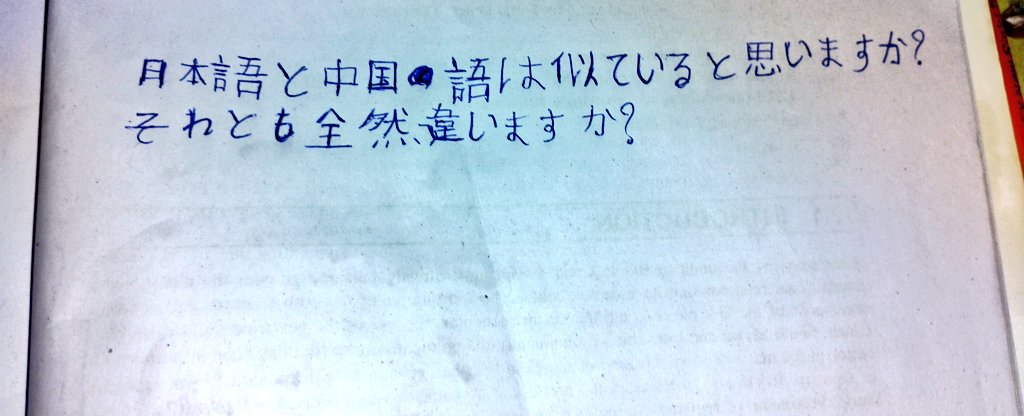 日本語と中国語は似ていると思いますか?
それとも全然違いますか?